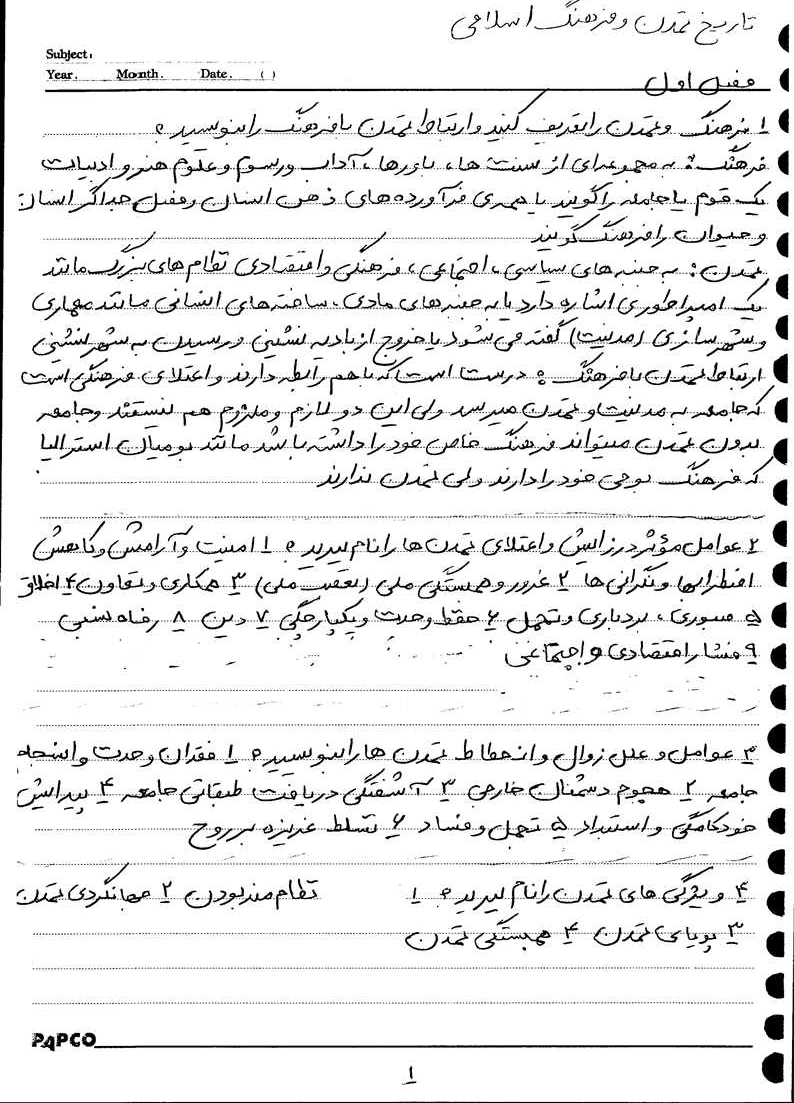 تاریخ تمدن و فرهنگ اسلامی
Subject:
Year. Month. Date. ( )
فصل اول
۱ فرهنگ و تمدن را تعریف کنید و ارتباط تمدن با فرهنگ را بنویسید؟
فرهنگ: به مجموعه‌ای از سنت ها، باورها، آداب و رسوم و علوم هنر و ادبیات
یک قوم یا جامعه را گویند یا همه‌ی فرآورده‌های ذهن انسان و فصل جداگر انسان
و حیوان را فرهنگ گویند
تمدن: به جنبه های سیاسی، اجتماعی، فرهنگی و اقتصادی نظام های بزرگ مانند
یک امپراطوری اشاره دارد یا به جنبه های مادی، ساخته‌های انسانی مانند معماری
و شهرسازی (مدنیت) گفته می شود یا خروج از بادیه نشینی و رسیدن به شهرنشینی
ارتباط تمدن با فرهنگ: درست است که با هم رابطه دارند و اعتلای فرهنگی است
که جامعه به مدنیت و تمدن میرسد ولی این دو لازم و ملزوم هم نیستند و جامعه
بدون تمدن میتواند فرهنگ خاص خود را داشته باشد مانند بومیان استرالیا
که فرهنگ بومی خود را دارند ولی تمدن ندارند
۲ عوامل مؤثر در زایش و اعتلای تمدن ها را نام ببرید؟ ۱ امنیت و آرامش و کاهش
اضطرابها و نگرانی ها ۲ غرور و همبستگی ملی (تعصب ملی) ۳ همکاری و تعاون ۴ اخلاق
۵ صبوری، بردباری و تحمل ۶ حفظ وحدت و یکپارچگی ۷ دین ۸ رفاه نسبی
۹ فشار اقتصادی و اجتماعی
۳ عوامل و علل زوال و انحطاط تمدن ها را بنویسید؟ ۱ فقدان وحدت و انسجام
جامعه ۲ هجوم دشمنان خارجی ۳ آشفتگی در بافت طبقاتی جامعه ۴ پیدایش
خودکامگی و استبداد ۵ تجمل و فساد ۶ تسلط غریزه بر روح
۴ ویژگی های تمدن را نام ببرید؟ ۱ نظام مند بودن ۲ جهانگردی تمدن
۳ پویای تمدن ۴ همبستگی تمدن
PAPCO
۱